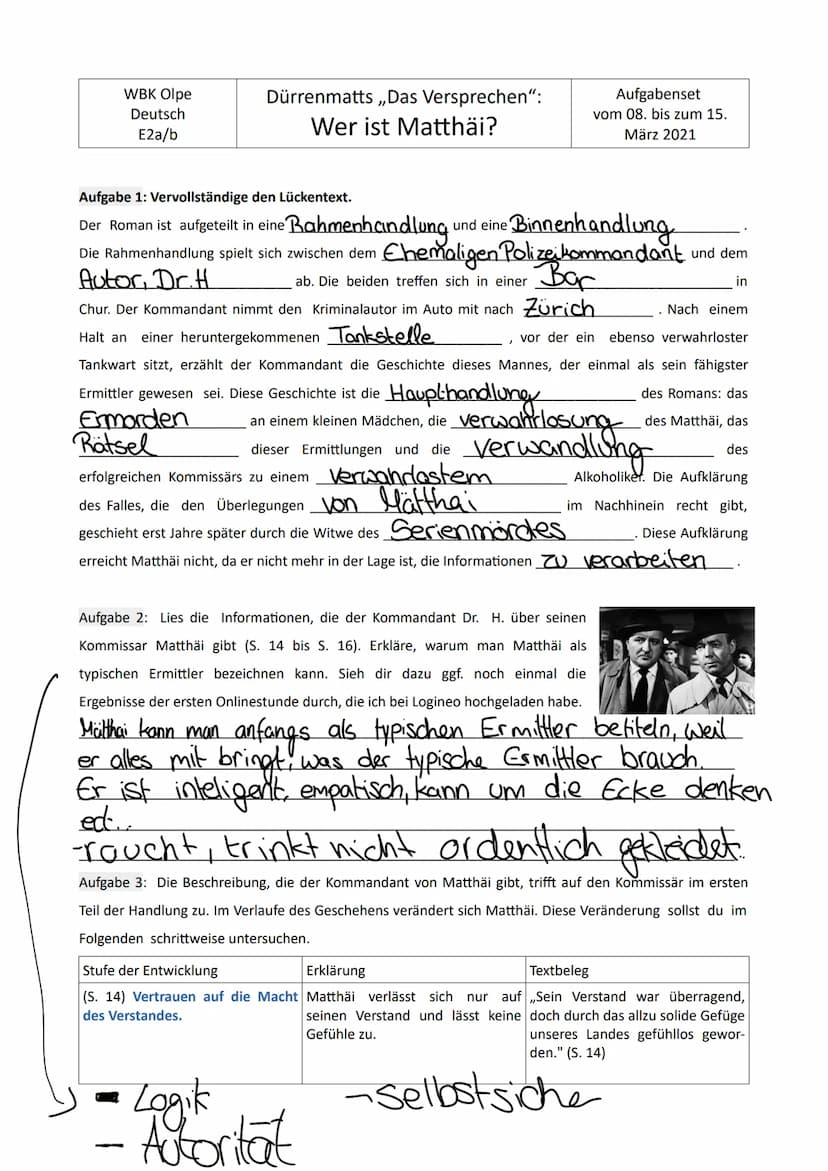 WBK Olpe
Deutsch
E2a/b
Dürrenmatts „Das Versprechen“:
Wer ist Matthäi?
Aufgabenset
vom 08. bis zum 15.
März 2021
Aufgabe 1: Vervollständige den Lückentext.
Der Roman ist aufgeteilt in eine Rahmenhandlung und eine Binnenhandlung.
Die Rahmenhandlung spielt sich zwischen dem Ehemaligen Polizeikommandant und dem
Autor, Dr. H ab. Die beiden treffen sich in einer Bar in
Chur. Der Kommandant nimmt den Kriminalautor im Auto mit nach Zürich. Nach einem
Halt an einer heruntergekommenen Tankstelle, vor der ein ebenso verwahrloster
Tankwart sitzt, erzählt der Kommandant die Geschichte dieses Mannes, der einmal als sein fähigster
Ermittler gewesen sei. Diese Geschichte ist die Haupthandlung des Romans: das
Ermorden an einem kleinen Mädchen, die verwahrlosung des Matthäi, das
Rätsel dieser Ermittlungen und die verwandlung des
erfolgreichen Kommissärs zu einem verwahrlastem Alkoholiker. Die Aufklärung
des Falles, die den Überlegungen von Mätthai im Nachhinein recht gibt,
geschieht erst Jahre später durch die Witwe des Serienmördes. Diese Aufklärung
erreicht Matthäi nicht, da er nicht mehr in der Lage ist, die Informationen zu verarbeiten.
Aufgabe 2: Lies die Informationen, die der Kommandant Dr. H. über seinen
Kommissar Matthäi gibt (S. 14 bis S. 16). Erkläre, warum man Matthäi als
typischen Ermittler bezeichnen kann. Sieh dir dazu ggf. noch einmal die
Ergebnisse der ersten Onlinestunde durch, die ich bei Logineo hochgeladen habe.
Mätthai kann man anfangs als typischen Ermittler betiteln, weil
er alles mit bringt, was der typische Ermittler brauch.
Er ist inteligent, empatisch, kann um die Ecke denken
ect..
-raucht, trinkt nicht ordentlich gekleidet.
Aufgabe 3: Die Beschreibung, die der Kommandant von Matthäi gibt, trifft auf den Kommissär im ersten
Teil der Handlung zu. Im Verlaufe des Geschehens verändert sich Matthäi. Diese Veränderung sollst du im
Folgenden schrittweise untersuchen.
Stufe der Entwicklung
Erklärung
Textbeleg
(S. 14) Vertrauen auf die Macht
des Verstandes.
Matthäi verlässt sich nur auf
seinen Verstand und lässt keine
Gefühle zu.
„Sein Verstand war überragend,
doch durch das allzu solide Gefüge
unseres Landes gefühllos gewor-
den." (S. 14)
- Logik
- selbstsicher
- Autorität